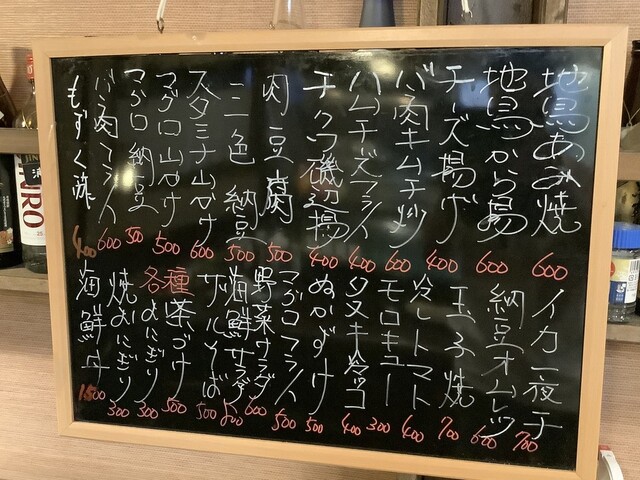 地鳥あみ焼 600
地鳥から揚 600
チーズ揚げ 400
バラ肉キムチ炒 600
ハムチーズフライ 400
チクワ磯辺揚 400
肉豆腐 500
三色納豆 500
スタミナ山かけ 600
マグロ山かけ 500
マグロ納豆 500
バラ肉フライ 600
もずく酢 400
イカ一夜干 700
納豆オムレツ 600
玉子焼 700
冷しトマト 400
モロキュー 300
タヌキ冷ヤッコ 400
ぬかずけ 500
マグロフライ 500
野菜サラダ 600
海鮮サラダ
ザルそば 500
各種 茶づけ 500
おにぎり 300
焼おにぎり 300
海鮮丼 1500